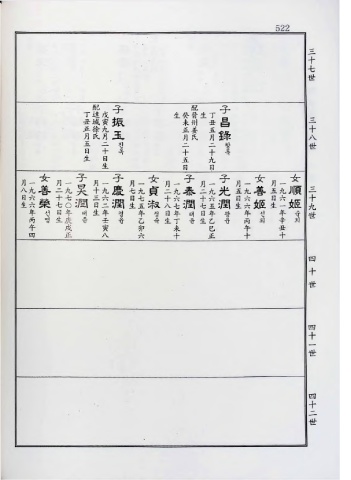 522
三十七世
三十八世
子昌錄창록
丁丑五月二十九日
生
配晉州姜氏
癸未正月二十五日
生
子振玉진옥
戊寅九月二十日生
配達城徐氏
丁丑正月五日生
三十九世
女順姬순희
一九六一年辛丑十
月五日生
女善姬선희
一九六六年丙午十
月五日生
子光潤광윤
一九六五年乙巳正
月二十七日生
子泰潤태윤
一九六七年丁未十
月二十八日生
女貞淑정숙
一九七五年乙卯六
月五日生
子慶潤경윤
一九六二年壬寅八
月十三日生
子昊潤
一九七〇年庚戌正
月二十七日生
女善榮선영
一九六六年丙午四
月八日生
四十世
四十一世
四十二世